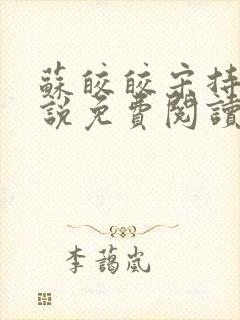 蘇皎皎宋持
說免費閱讀
李蔼嵐